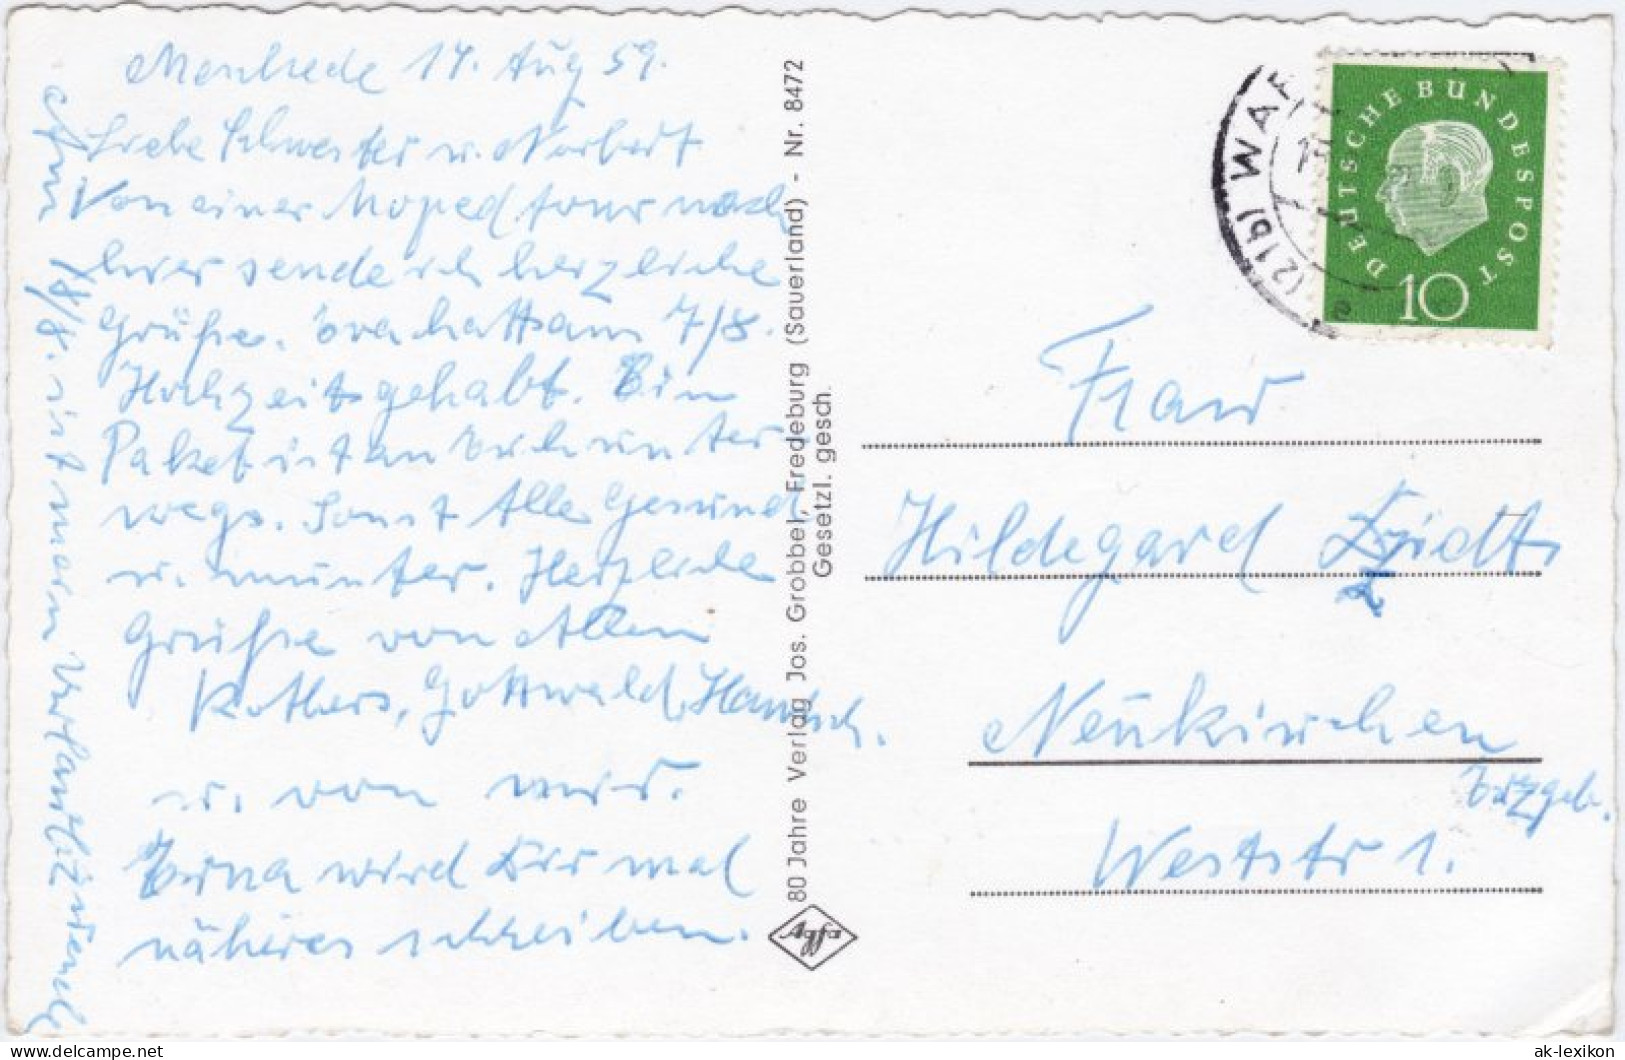 Meschede 14. Aug 59.
Liebe Schwester u. Norbert
Von einer Moped tour nach
hier sende ich herzliche
Grüße. Eva hatts am 7/8.
Hochzeit gehabt. Ein
Paket ist an Euch unter
wegs. Sonst Alle Gesund
u. munter. Herzliche
Grüße von Allen
Kothers, Gottwald, Hanusch.
u. von mir.
Erna wird Dir mal
näheres schreiben.
Am 18/8. ist mein Urlaub zu ende
80 Jahre Verlag Jos. Grobbel, Fredeburg (Sauerland) - Nr. 8472
Gesetzl. gesch.
Agfa
(21b) WAR
DEUTSCHE BUNDESPOST
10
Frau
Hildegard
Neukirchen
Erzgeb.
Weststr 1.
ak-lexikon